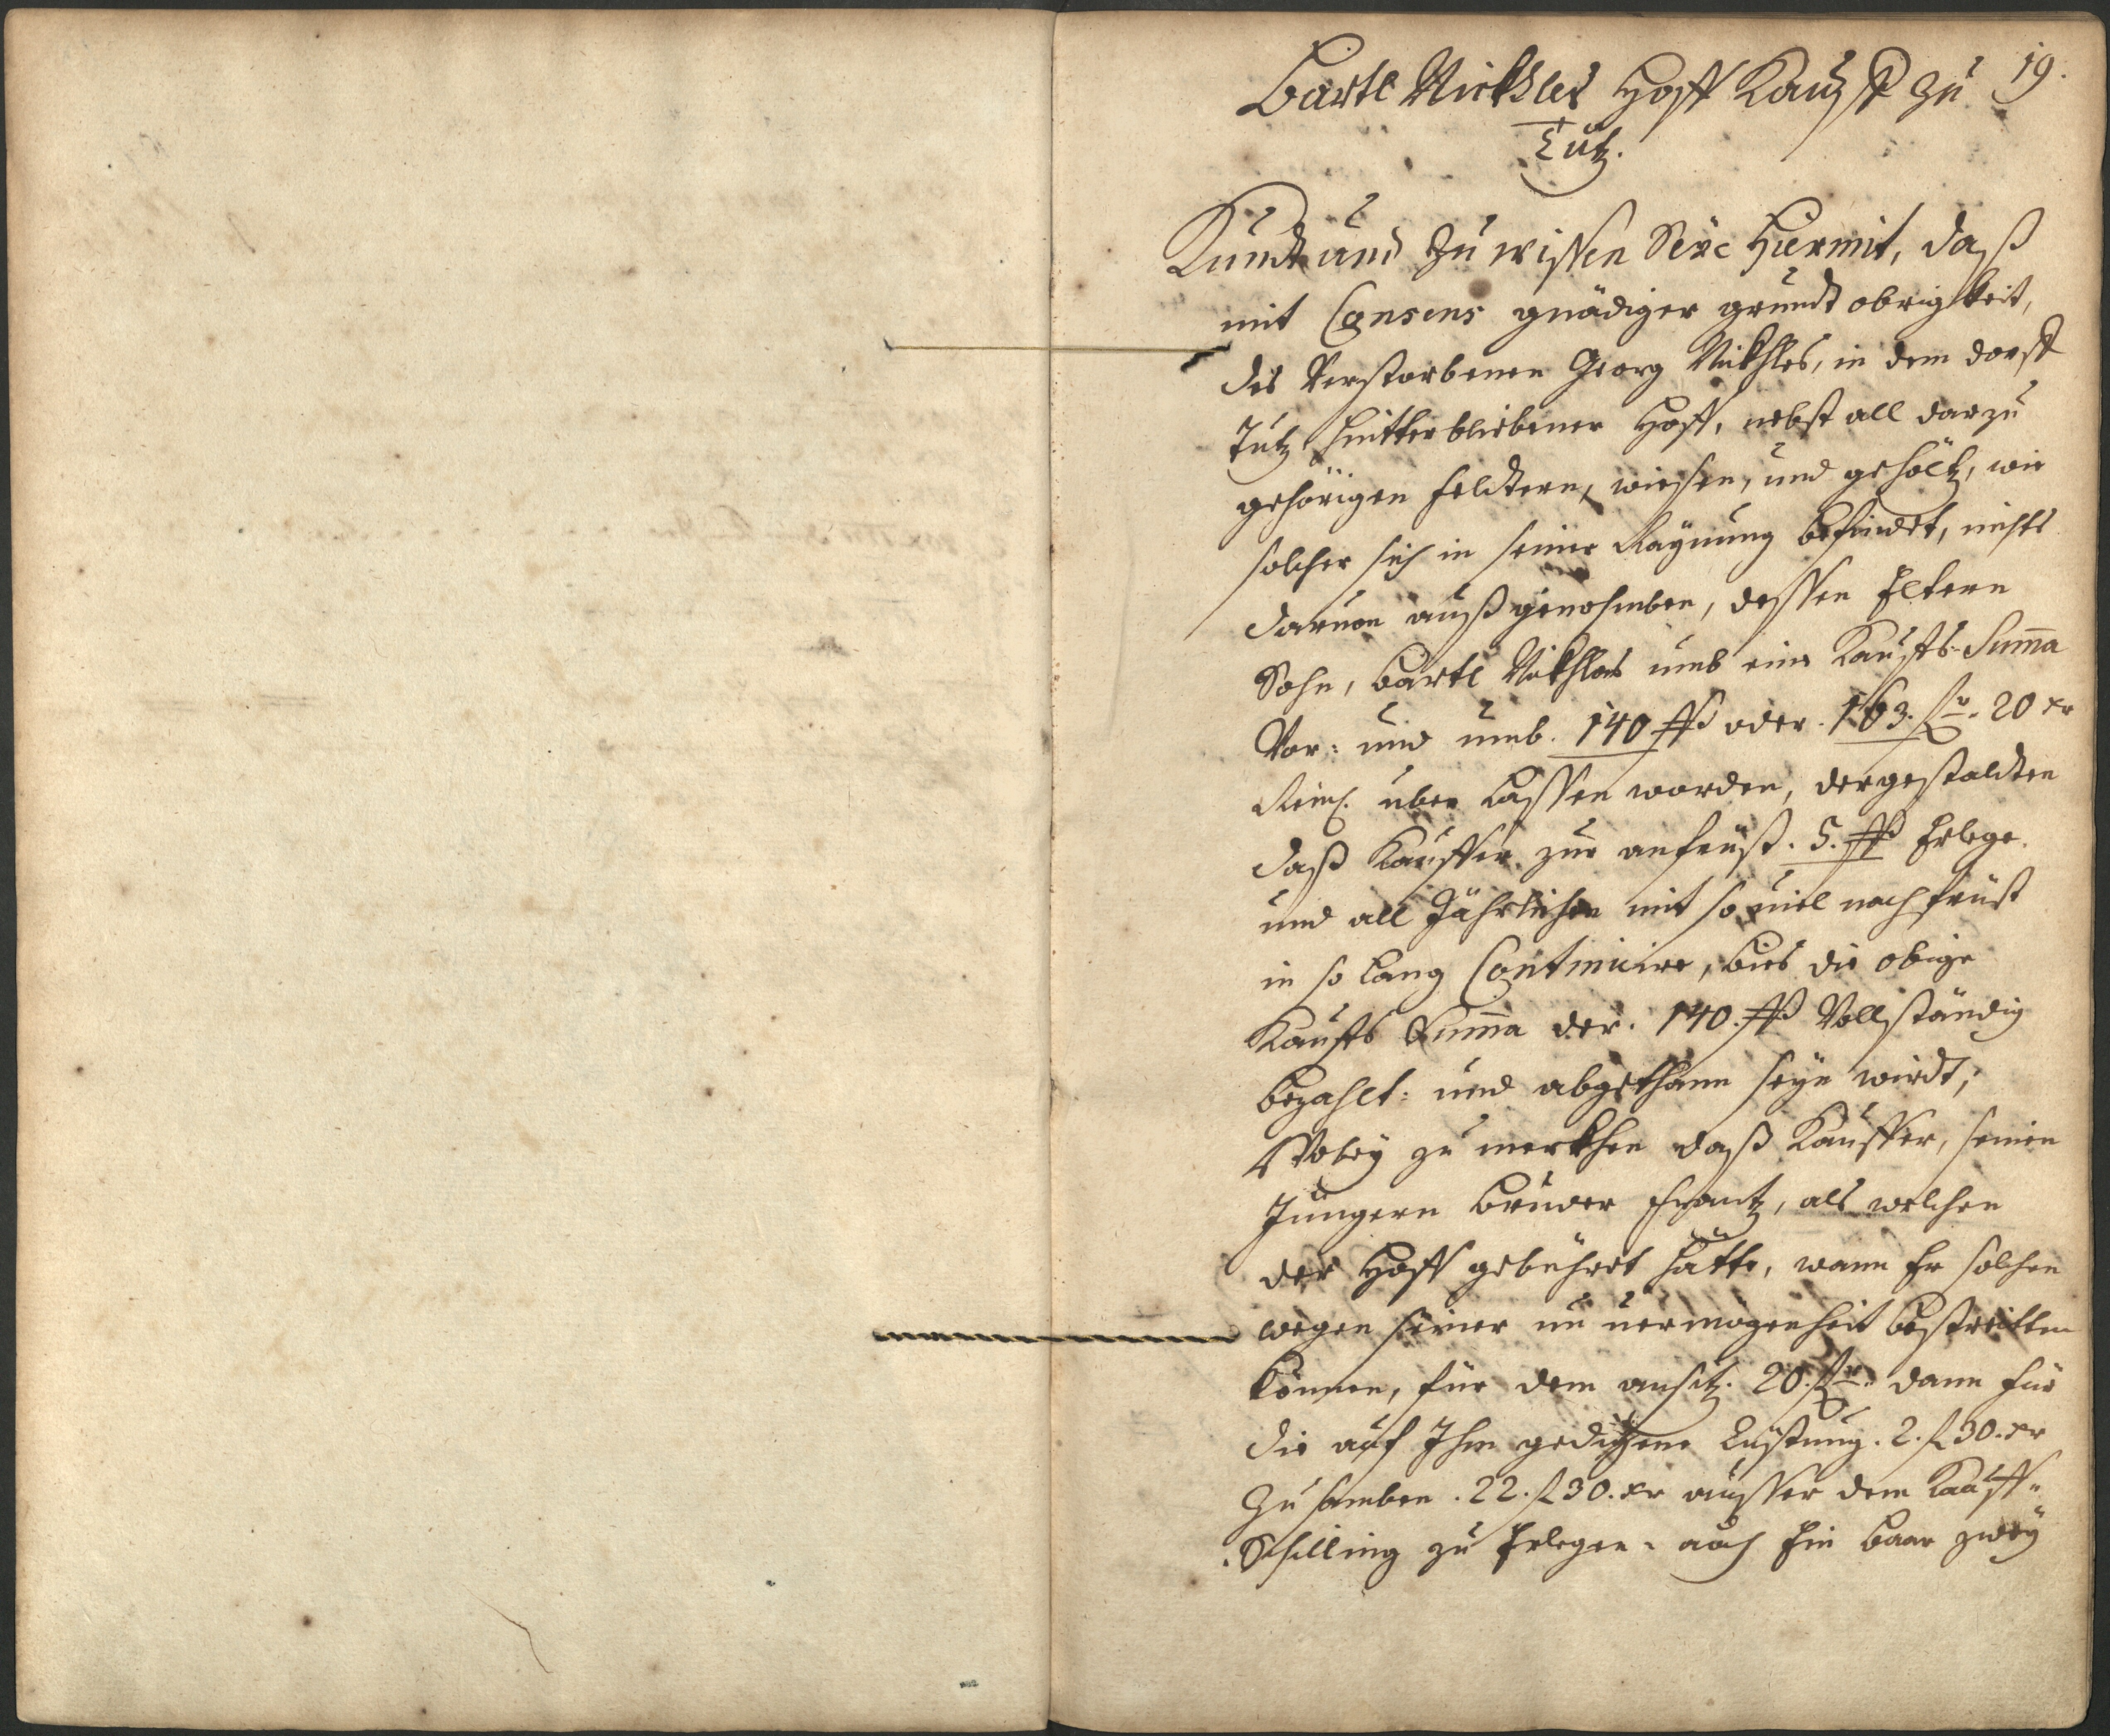 19.
Bartl Nickhles Hoff Kauff zu
Tutz.
Kundt und Zu wissen Seÿe Hiermit, daß
mit Consens gnädiger grundt obrigkeit,
des Verstorbenen Georg Nikhles, in dem dorff
Tutz hintterbliebener Hoff, nebst all darzu
gehörigen feldtern, wiesen, und gehöltz, wie
solcher sich in seiner Raÿnung befindet, nichts
daruon außgenohmben, dessen Eltern
Sohn, Bartl Nikhles umb eine Kauffs-Summa
Vor: und umb. 140 ßo oder. 163. fr. 20 xr
Reinl. uber lassen worden, dergestaldten
daß Kauffer zur anfrüst. 5. ßo Erlege.
und all Jährlichen mit so uiel nachfrüst
in so lang Continuire, bies die obige
Kauffs Summa der. 140. ßo Vollständig
bezahlt: und abgethann seÿn wirdt;
Wobeÿ zu merkhen daß Kauffer, seinen
Jüngern bruder Frantz, als welchen
der Hoff gebühret hätte, wann Er solchen
wegen seiner un uermögenheit bestreitten
können, für dem ansitz. 20. fr. dann für
die auf Ihm gedigene Lüstung. 2. f 30. xr
Zusamben. 22. f 30. xr ausser dem Kauff„
Schilling zu Erlegen. auch Ein baar zweÿ